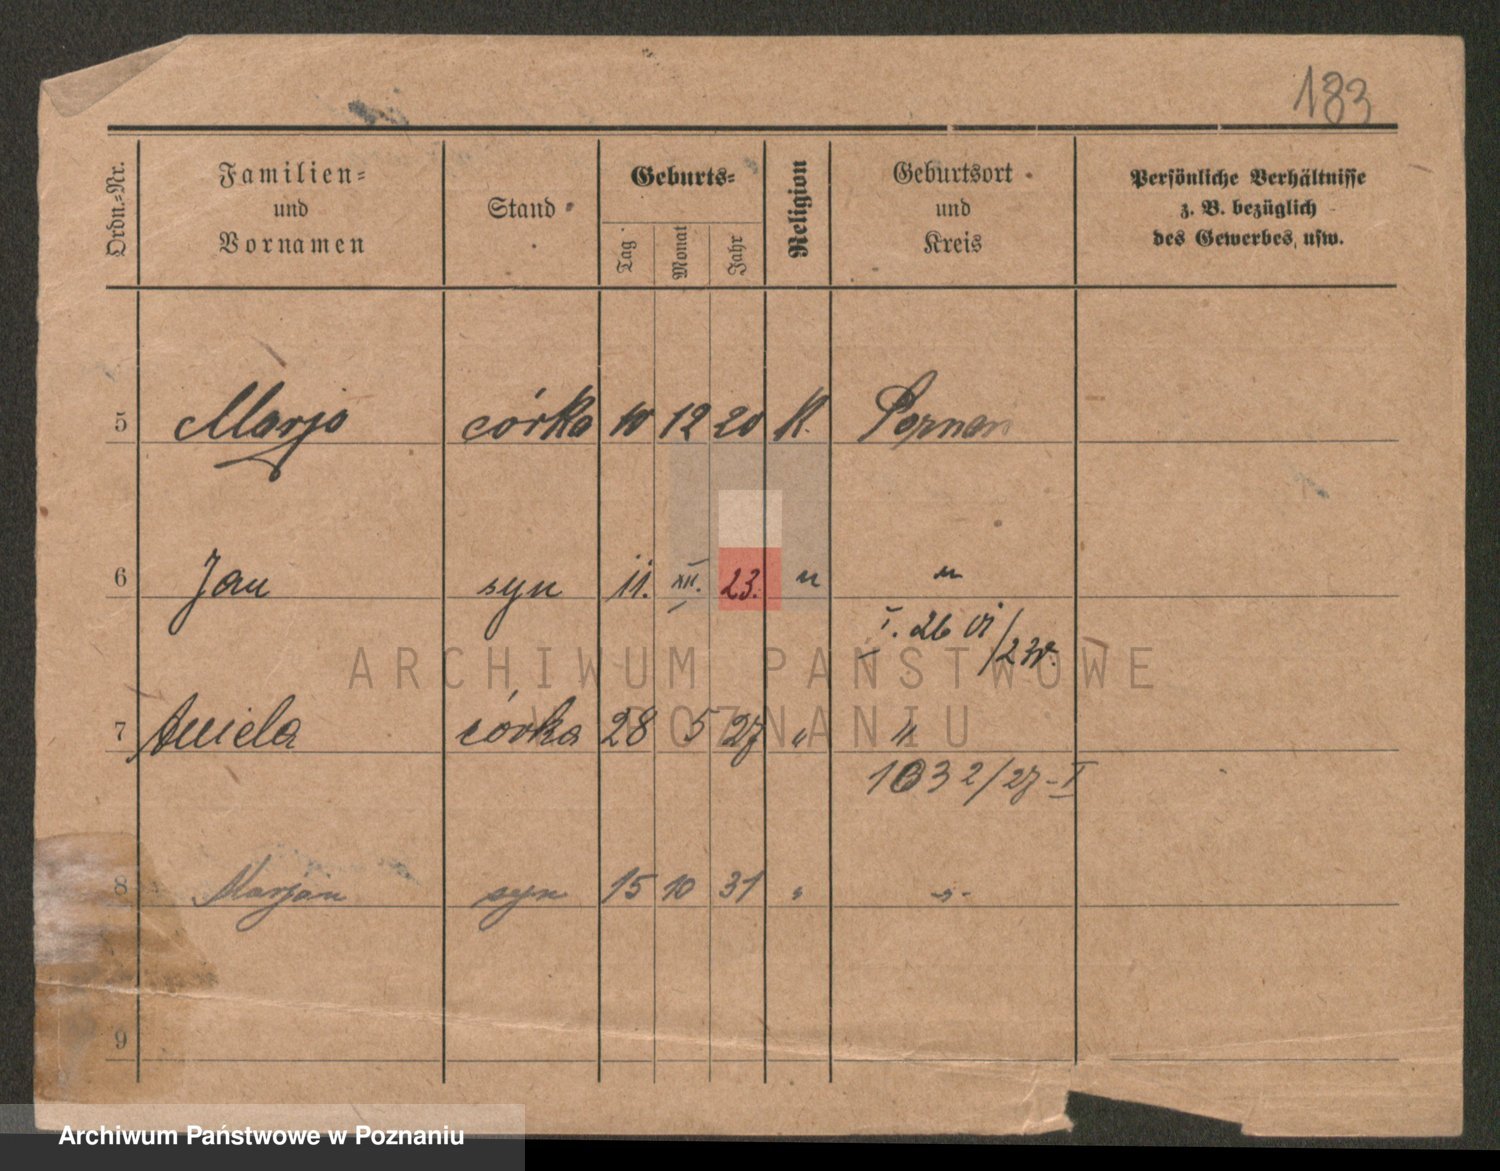 183
Ordn.-Nr.
Familien-
und
Vornamen
Stand
Geburts-
Tag
Monat
Jahr
Religion
Geburtsort
und
Kreis
Persönliche Verhältnisse
z. B. bezüglich
des Gewerbes, usw.
5 Marja córka 10 12 20 K. Poznań
6 Jan syn 11. XII. 23. " "
I. 26 VI/230.
ARCHIWUM PAŃSTWOWE
W POZNANIU
7 Aniela córka 28 5 27 " "
1032/27-I
8 Marjan syn 15 10 31 " "
9
Archiwum Państwowe w Poznaniu